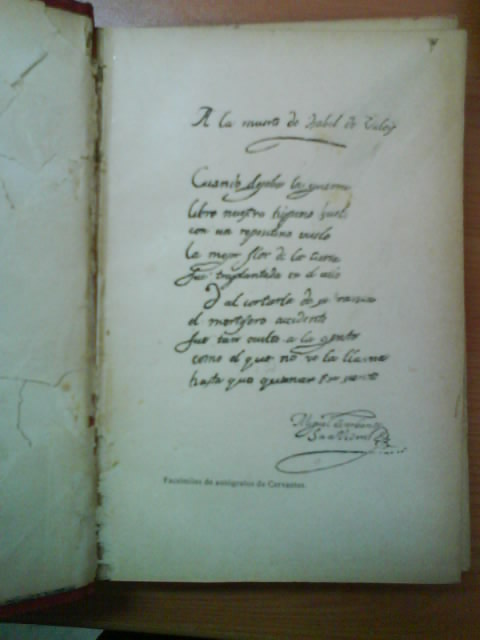 A la muerte de Isabel de Valoys
Cuando dejaba la guerra
libre nuestro hispano suelo
con un repentino vuelo
la mejor flor de la tierra
fue trasplantada en el cielo
Y al cortarla de su rama
el mortifero accidente
fue tan oculta a la gente
como el que no ve la llama
hasta que quemar se siente
Miguel de Cervantes
Saavedra
Facsímiles de autógrafos de Cervantes.